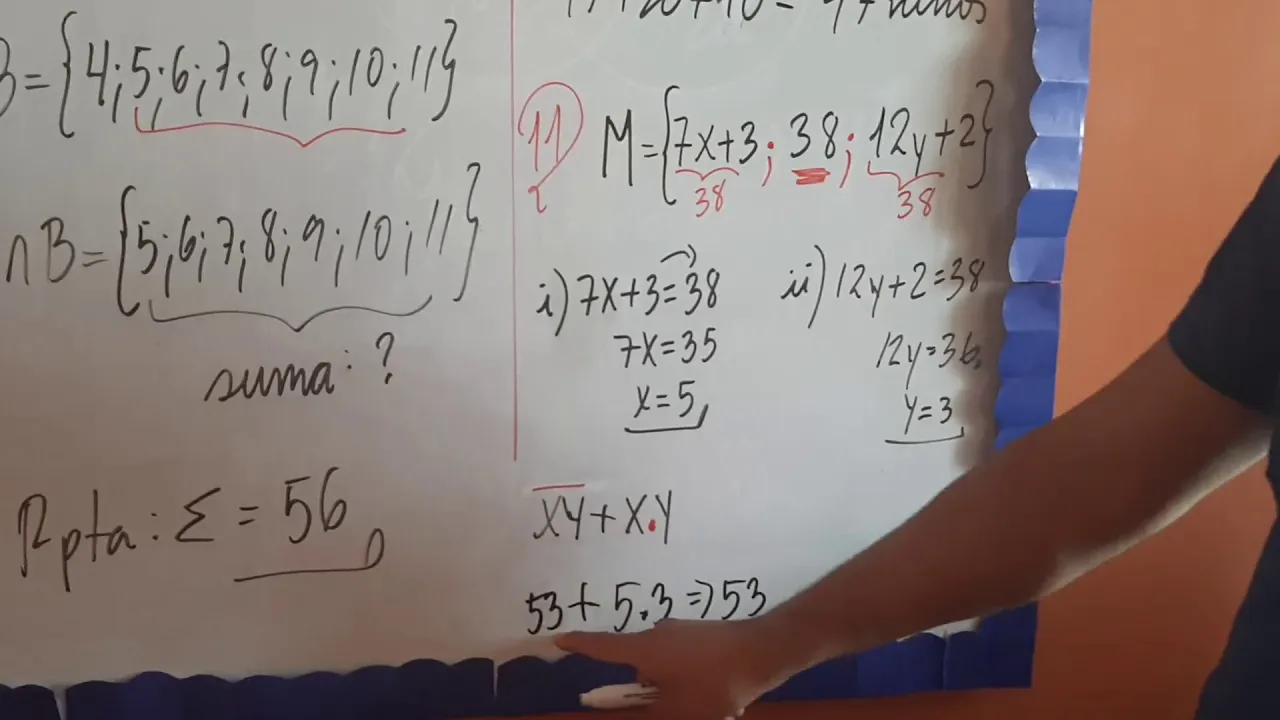 B={4;5;6;7;8;9;10;11}
∩B={5;6;7;8;9;10;11}
suma: ?
Rpta: Σ = 56
11
M={7x+3; 38; 12y+2}
38 38
i) 7x+3=38
7x=35
x=5
ii) 12y+2=38
12y=36
y=3
xy+x.y
53+5.3⇒53